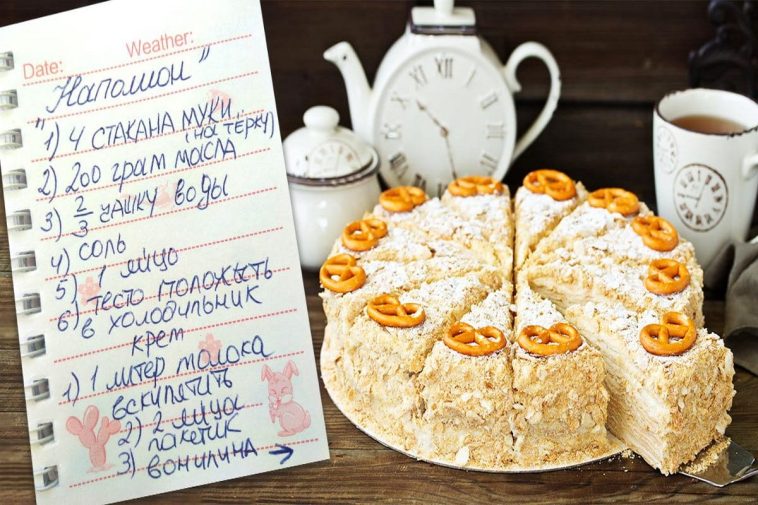 Date: Weather:
"Напомион"
1) 4 СТАКАНА МУКИ..
(на тёрку)
2) 200 грам МАСЛА
3) 2/3 чашку воды
4) соль
5) 1 яйцо
6) тесто положыть
в холодильник
крем
1) 1 литер молока
вскипятить
2) 2 яйца
пакетик
3) вонилина →
XII